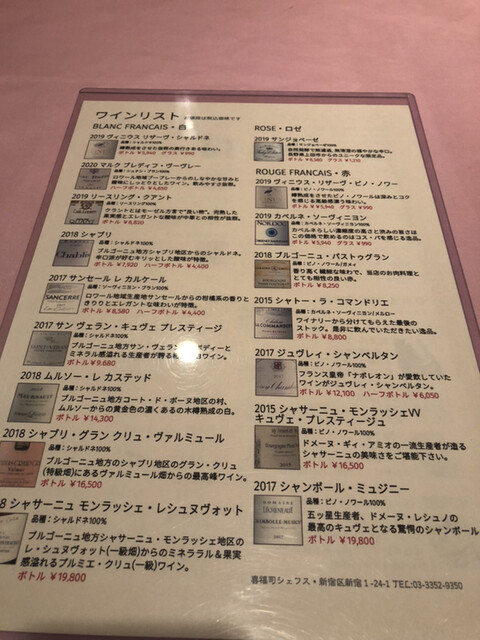 ワインリスト
BLANC FRANCAIS・白
2019 ヴィニウス リザーヴ・シャルドネ
品種：シャルドネ100%
ボトル ¥5,940 グラス ¥990
2020 マルク ブレディフ・ヴーヴレー
ロワール地域ブーブレーからのしなやかな甘みと
酸味にしっとりとしたワイン。飲みやすさ抜群。
ハーフボトル ¥4,850
2019 リースリング・クアント
果実感とエレガントな酸味が中華との相性が抜群。
ボトル ¥6,820
2018 シャブリ
品種：シャルドネ100%
ブルゴーニュ地方シャブリ地区からのシャルドネ。
辛口派が好むキリッとした酸味が特徴。
ボトル ¥7,920 ハーフボトル ¥4,400
2017 サンセール レ カルケール
品種：ソーヴィニヨン・ブラン100%
ロワール地域生産地サンセール地区からの柑橘系の香りと
きりりとエレガントな味わいが特徴。
ボトル ¥8,580 ハーフボトル ¥4,400
2017 サン ヴェラン・キュヴェ プレスティージ
品種：シャルドネ100%
ミネラル感溢れる生産者が誇る
ボトル ¥9,680
2018 ムルソー・レ カステッド
品種：シャルドネ100%
ブルゴーニュ地方コート・ド・ボーヌ地区の村、
ムルソーからの黄金色の濃くあるの木樽熟成の白。
ボトル ¥14,300
2018 シャブリ・グラン クリュ・ヴァルミュール
品種：シャルドネ100%
ブルゴーニュ地方のシャブリ地区のグラン・クリュ
(特級畑)にあるヴァルミュール畑からの最高峰ワイン。
ボトル ¥16,500
8 シャサーニュ モンラッシェ・レシュヌヴォット
品種：シャルドネ100%
ブルゴーニュ地方シャサーニュ・モンラッシェ地区の
レ・シュヌヴォット(一級畑)からのミネララル＆果実
感溢れるプルミエ・クリュ(一級)ワイン。
ボトル ¥19,800
ROSE・ロゼ
2019 サンジョベーゼ
品種：サンジョベーゼ100%
ボトル ¥9,180 グラス ¥1,210
ROUGE FRANCAIS・赤
2019 ヴィニウス・リザーヴ・ピノ・ノワー
品種：ピノ・ノワール100%
ボトル ¥5,940 グラス ¥990
2019 カベルネ・ソーヴィニヨン
品種：カベルネ・ソーヴィニヨン100%
カベルネらしい濃縮度の高さと渋みの旨さは
この価格で飲めるのはコス・パを感じる逸品。
ボトル ¥5,940 グラス ¥990
2018 ブルゴーニュ・パストゥグラン
香り高く繊細な味わで、当店のお肉料理と
とても相性の良い赤。
ボトル ¥8,250
2015 シャトー・ラ・コマンドリエ
ワイナリーから分けてもらえた最後の
ストック。是非に飲んでいただきたい逸品。
ボトル ¥8,800
2017 ジュヴレイ・シャンベルタン
品種：ピノ・ノワール100%
フランス皇帝「ナポレオン」が愛飲していた
ワインがジュヴレイ・シャンベルタン。
ボトル ¥12,100 ハーフ ¥6,050
2015 シャサーニュ・モンラッシェVV
キュヴェ・プレスティージュ
品種：ピノ・ノワール100%
ドメーヌ・ギィ・アミオの一流生産者が造る
シャサーニュの美味さをご堪能下さい。
ボトル ¥16,500
2017 シャンボール・ミュジニー
品種：ピノ・ノワール100%
五ッ星生産者、ドメーヌ・レシュノの
最高のキュヴェとなる驚愕のシャンボール
ボトル ¥19,800
喜福司シェフス・新宿区新宿 1-24-1 TEL:03-3352-9350